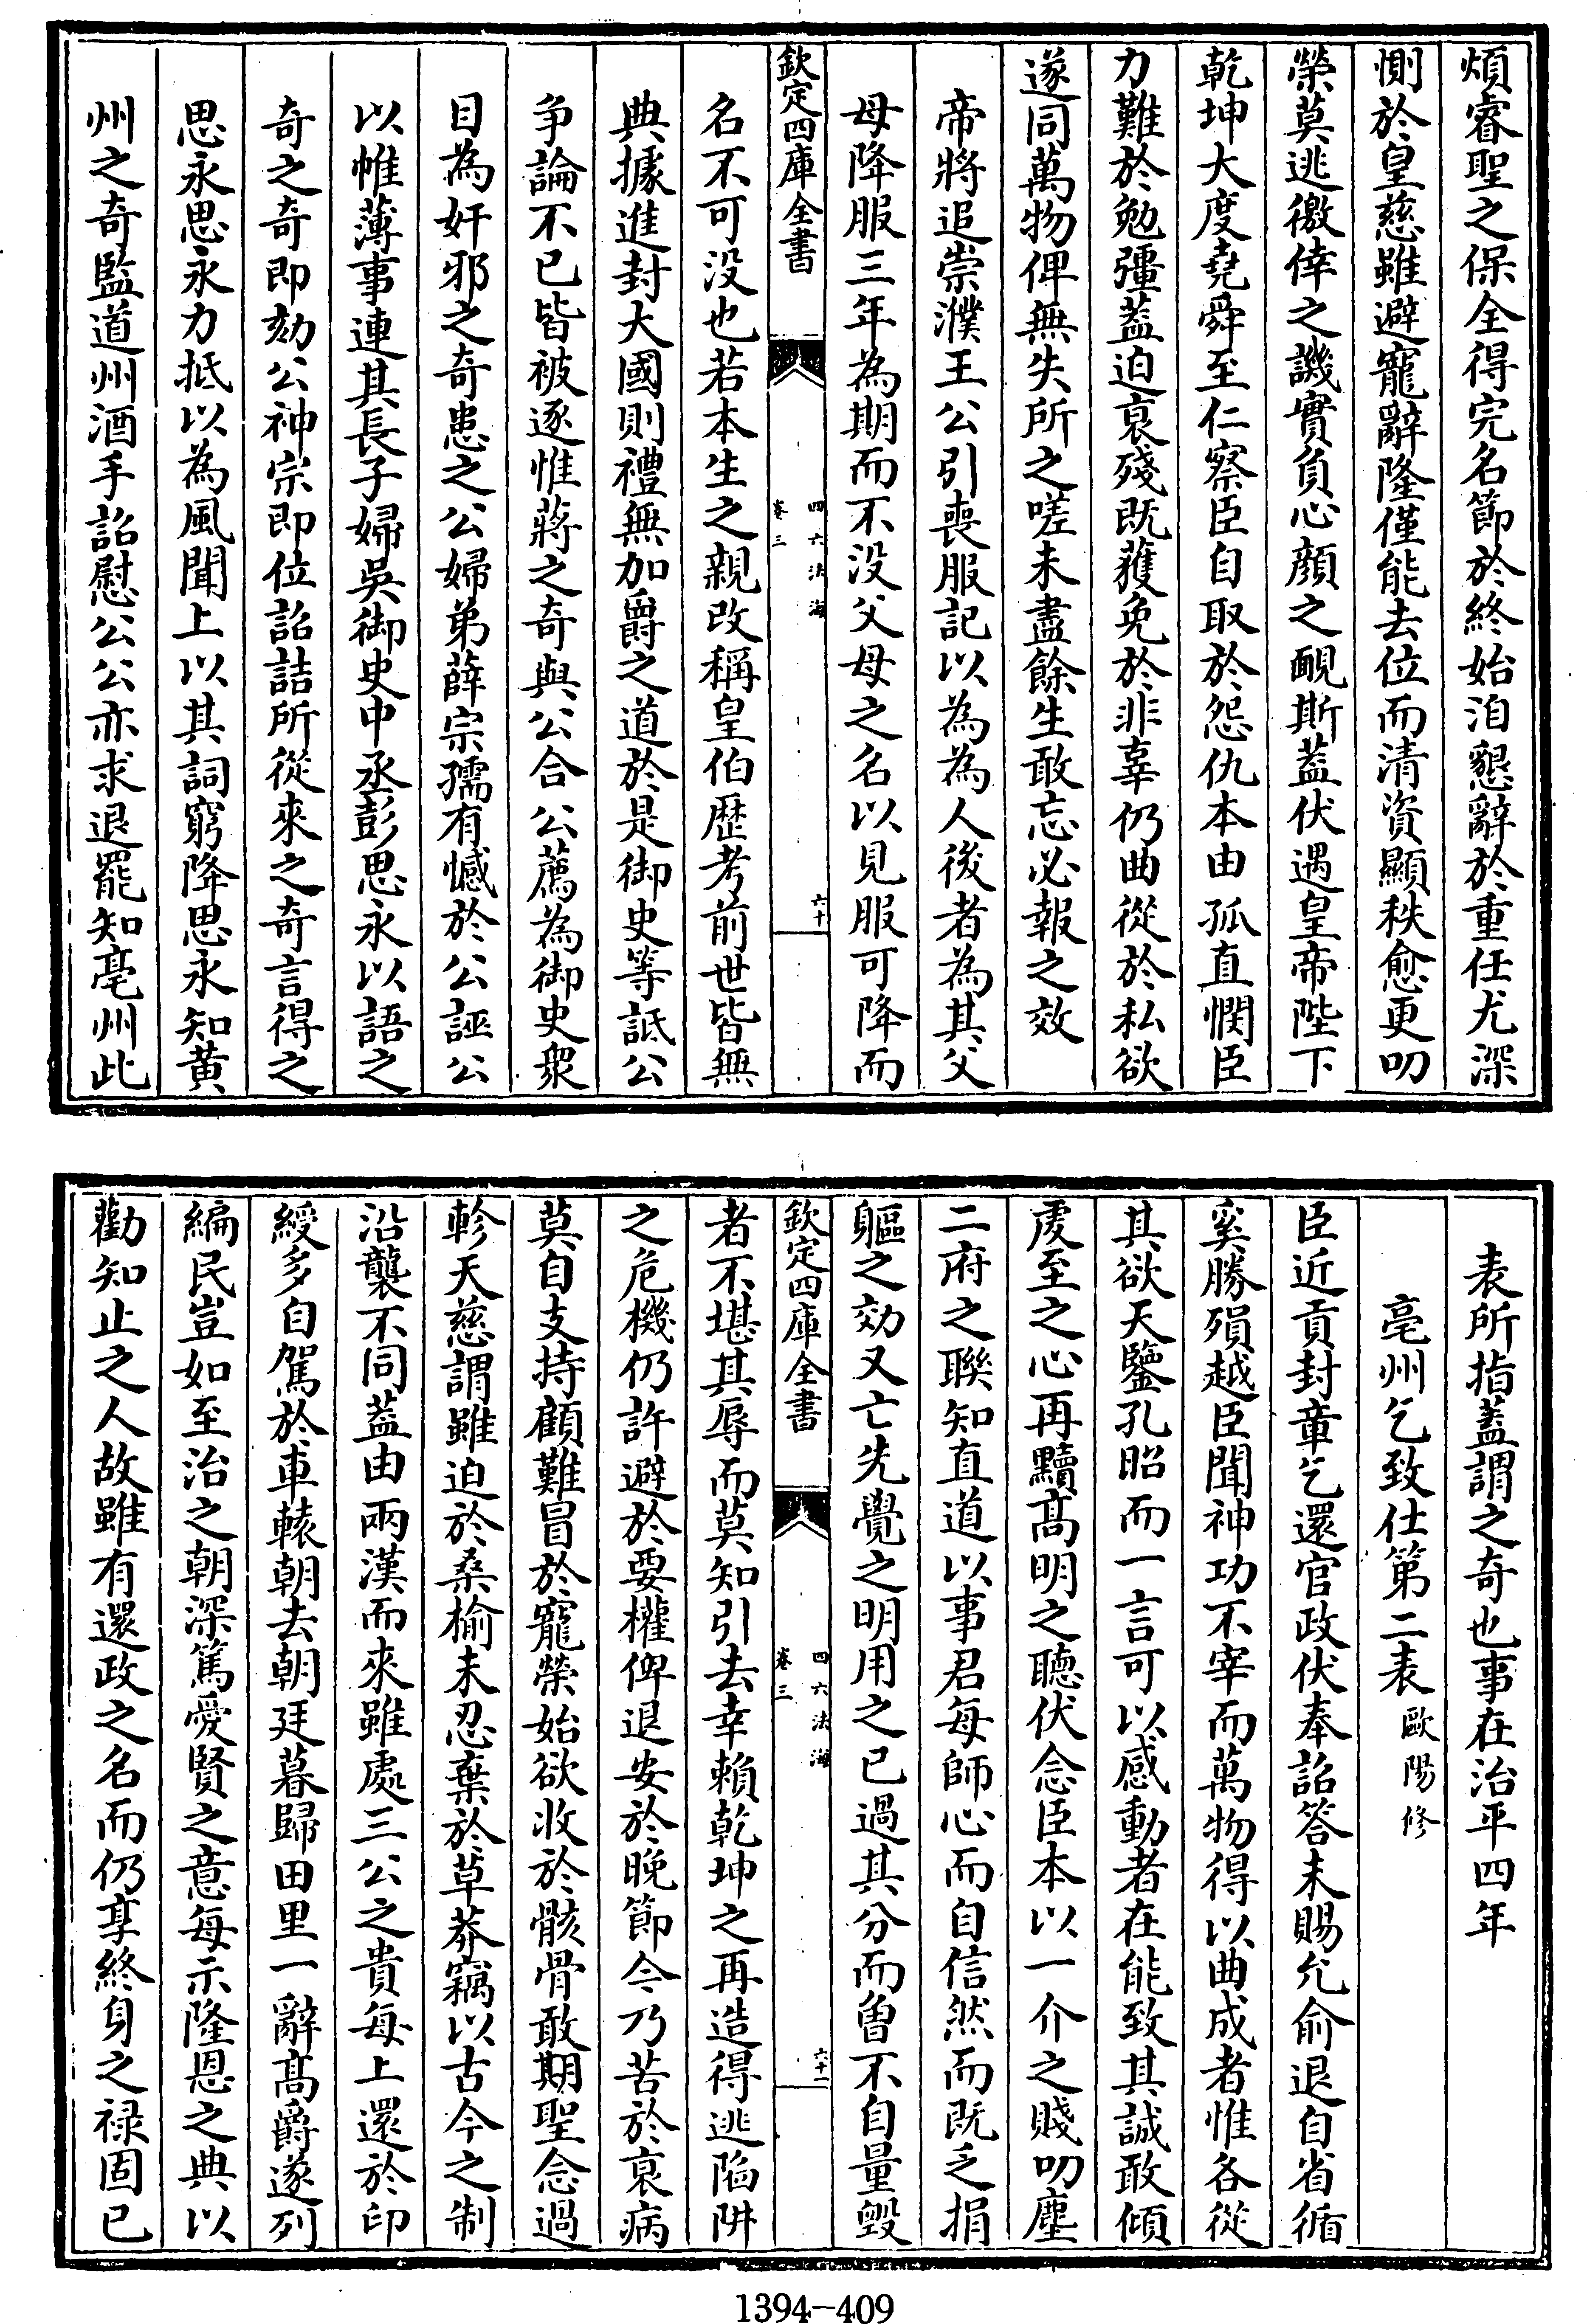 煩睿聖之保全得完名節於終始洎懇辭於重任尤深
惻於皇慈雖避寵辭隆僅能去位而清資顯秩愈更叨
榮莫逃徼倖之譏實負心顔之靦斯蓋伏遇皇帝陛下
乾坤大度堯舜至仁察臣自取於怨仇本由孤直憫臣
力難於勉彊蓋迫衰殘既獲免於非辜仍曲從於私欲
遂同萬物俾無失所之嗟未盡餘生敢忘必報之效
帝將追崇濮王公引喪服記以為為人後者為其父
母降服三年為期而不没父母之名以見服可降而
欽定四庫全書
四六法海
卷三
六十
名不可没也若本生之親改稱皇伯歴考前世皆無
典據進封大國則禮無加爵之道於是御史等詆公
争論不已皆被逐惟蔣之奇與公合公薦為御史衆
目為奸邪之奇患之公婦弟薛宗孺有憾於公誣公
以帷薄事連其長子婦吳御史中丞彭思永以語之
奇之奇即劾公神宗即位詔詰所從來之奇言得之
思永思永力抵以為風聞上以其詞窮降思永知黄
州之奇監道州酒手詔慰公公亦求退罷知亳州此
表所指蓋謂之奇也事在治平四年
亳州乞致仕第二表 歐陽修
臣近貢封章乞還官政伏奉詔答未賜允俞退自省循
奚勝殞越臣聞神功不宰而萬物得以曲成者惟各從
其欲天鑒孔昭而一言可以感動者在能致其誠敢傾
虔至之心再黷髙明之聽伏念臣本以一介之賤叨塵
二府之聯知直道以事君每師心而自信然而既乏捐
軀之効又亡先覺之明用之已過其分而曽不自量毁
欽定四庫全書
四六法海
卷三
六十一
者不堪其辱而莫知引去幸賴乾坤之再造得逃陷阱
之危機仍許避於要權俾退安於晚節今乃苦於衰病
莫自支持顧難冒於寵榮始欲收於骸骨敢期聖念過
軫天慈謂雖迫於桑榆未忍棄於草莽竊以古今之制
沿襲不同蓋由兩漢而來雖處三公之貴每上還於印
綬多自駕於車轅朝去朝廷暮歸田里一辭髙爵遂列
編民豈如至治之朝深篤愛賢之意每示隆恩之典以
勸知止之人故雖有還政之名而仍享終身之禄固已
1394-409